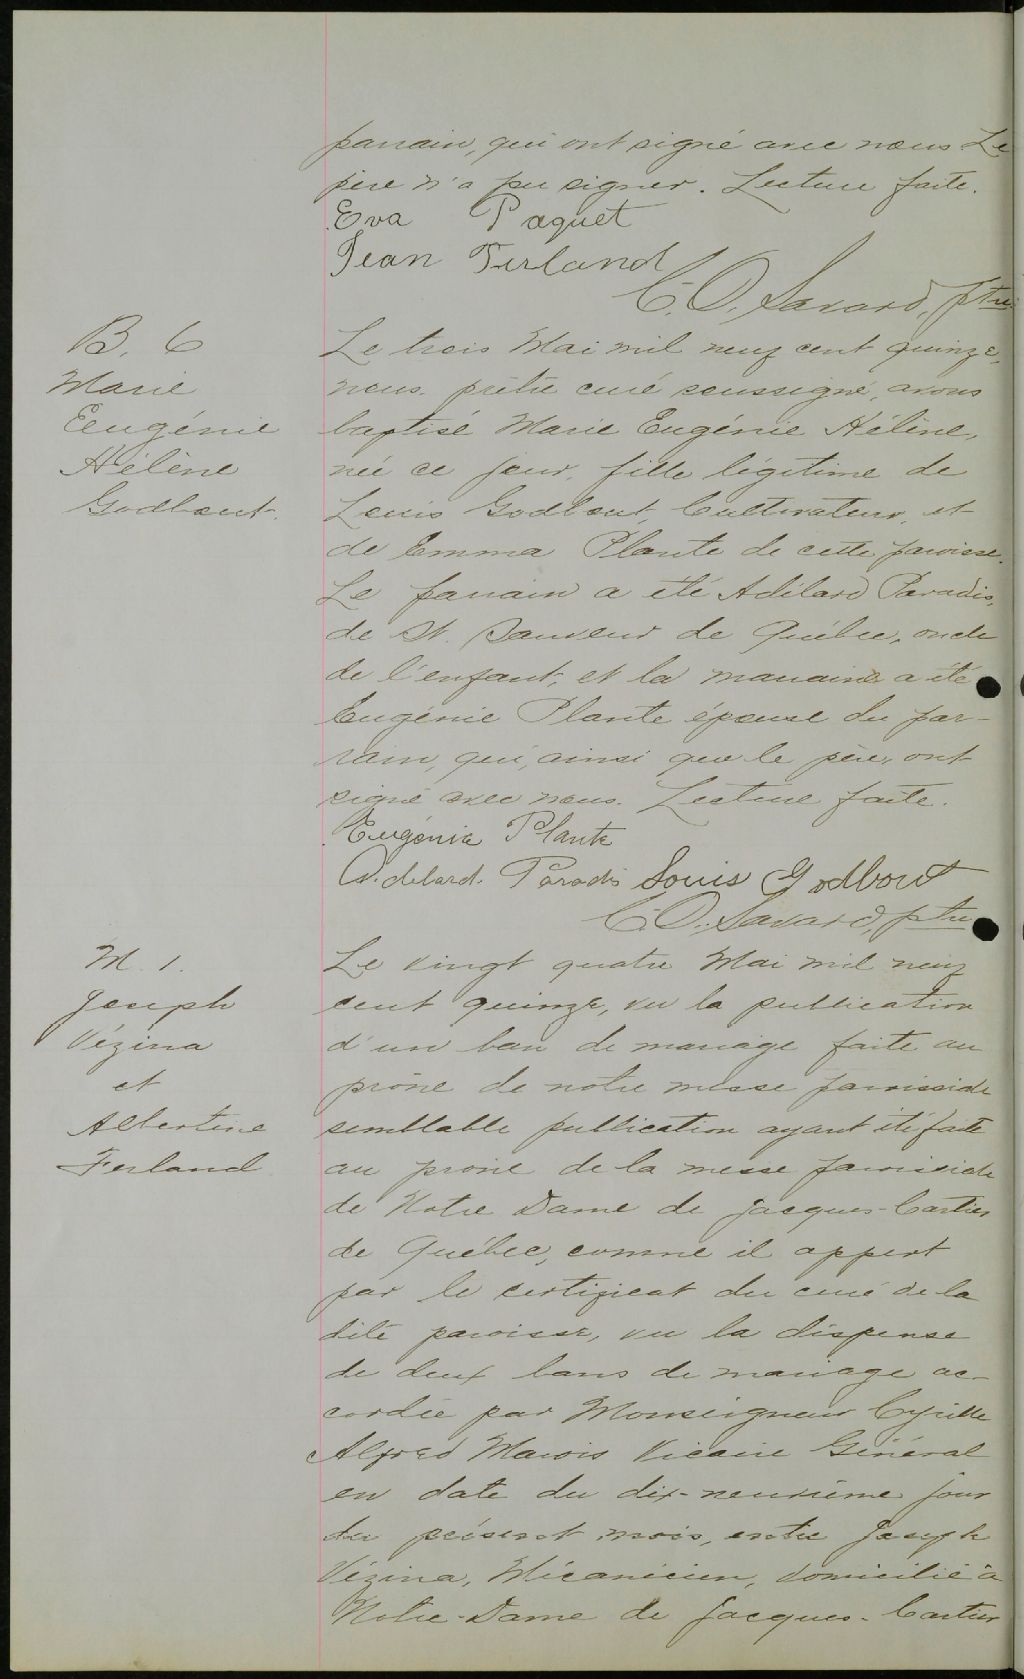 parrain, qui ont signé avec nous Le
père n'a pu signer. Lecture faite.
Eva Paquet
Jean Ferland
C. O. Savard, ptre
B. 6
Marie
Eugénie
Hélène
Godbout.
Le trois Mai mil neuf cent quinze,
nous prêtre curé soussigné, avons
baptisé Marie Eugénie Hélène,
née ce jour, fille légitime de
Louis Godbout, Cultivateur, et
de Emma Plante de cette paroisse.
Le parrain a été Adélard Paradis,
de St. Sauveur de Québec, oncle
de l'enfant et la marraine a été
Eugénie Plante épouse du par-
rain, qui, ainsi que le père, ont
signé avec nous. Lecture faite.
Eugénie Plante
Adelard. Paradis Louis Godbout
C. O. Savard, ptre
M. 1.
Joseph
Vézina
et
Albertine
Ferland
Le vingt quatre Mai mil neuf
cent quinze, vu la publication
d'un ban de mariage faite au
prône de notre messe paroissiale
semblable publication ayant été faite
au prône de la messe paroissiale
de Notre Dame de Jacques-Cartier
de Québec, comme il appert
par le certificat du curé de la
dite paroisse, vu la dispense
de deux bans de mariage ac-
cordée par Monseigneur Cyrille
Alfred Marois Vicaire Général
en date du dix-neuvième jour
du présent mois, entre Joseph
Vézina, Mécanicien, domicilié à
Notre-Dame de Jacques-Cartier